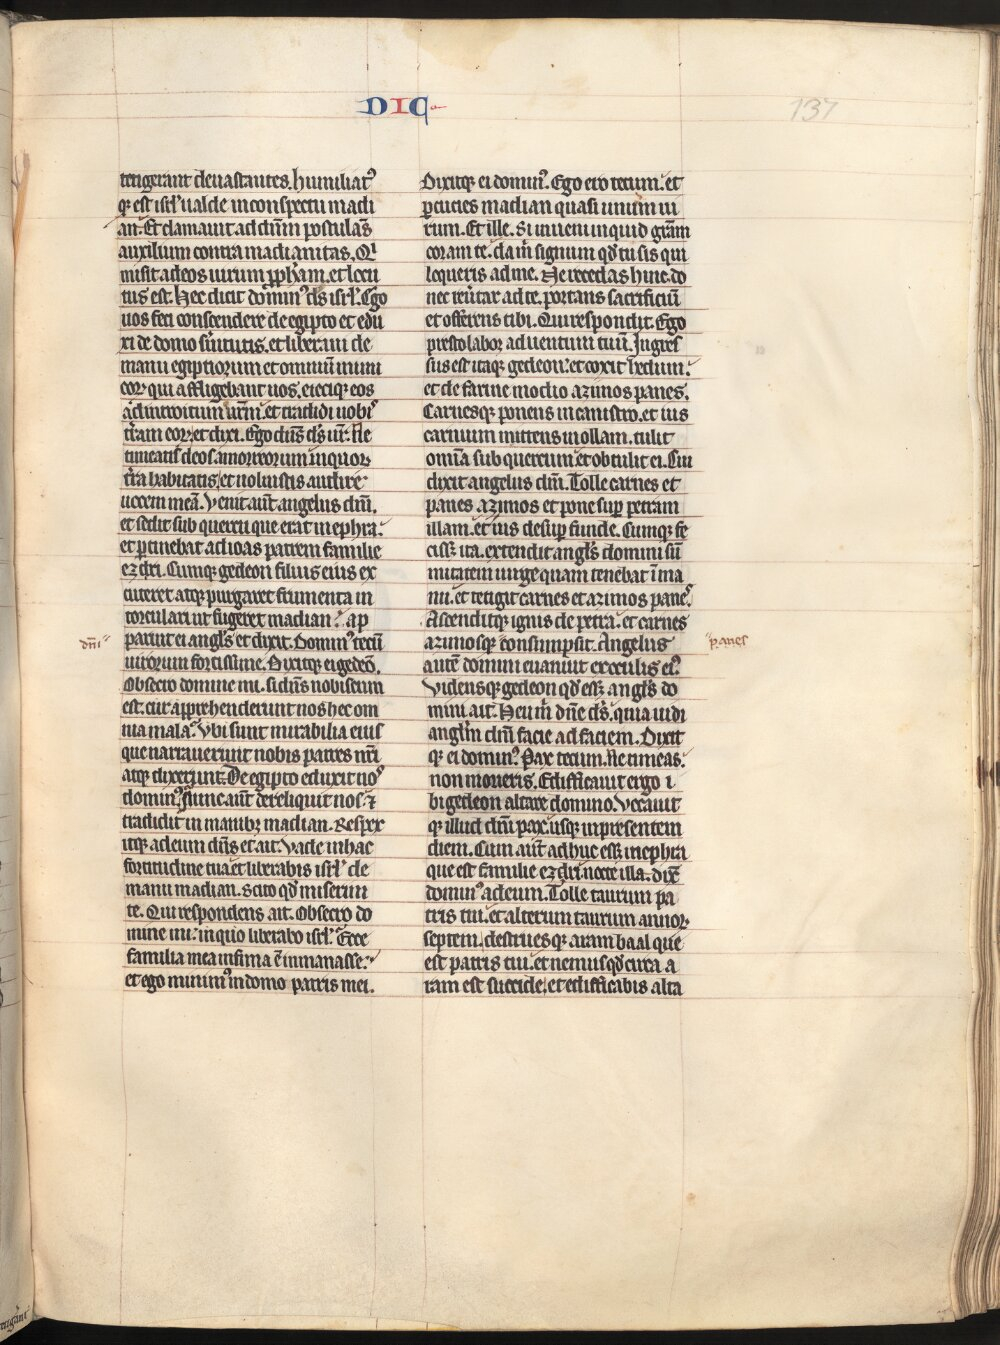 DIC
137
tetigerant deuastantes. humiliatꝰ
qꝫ est isrł ualde in conspectu madi
an. Et clamauit ad dn̄m postulās
auxilium contra madianitas. Qi
misit ad eos uirum ꝓph̄am. et locu
tus est. Hec dicit dominꝰ ds̄ isrł. Ego
uos feci conscendere de egipto et edu
xi de domo s̄uitutis. et liberaui de
manu egiptiorum et omniū inimi
coꝝ qui affligebant uos. eieciqꝫ eos
ad introitum ur̄m. et tradidi uobis
tr̄am eoꝝ. et dixi. Ego dn̄s ds̄ ur̄. Ne
timeatis deos amorreorum in quoꝝ
tr̄a habitatis. et noluistis audire
uocem meā. Venit aut̄ angelus dn̄i.
et sedit sub quercu que erat in ephra.
et ꝑtinebat ad ioas patrem familie
ezdri. Cumqꝫ gedeon filius eius ex
cuteret atqꝫ purgaret frumenta in
torculari ut fugeret madian. ap
paruit ei angl̄s et dixit. Dominꝰ tecū
dn̄i
uirorum fortissime. Dixitqꝫ ei gedeō.
Obsecro domine mi. si dn̄s nobiscum
est. cur apprehenderunt nos hec om
nia mala. Vbi sunt mirabilia eius
que narrauerunt nobis patres nr̄i
atqꝫ dixerunt. De egipto eduxit nos
dominꝰ. Nunc aut̄ dereliquit nos. ⁊
tradidit in manibꝫ madian. Respex
itqꝫ ad eum dn̄s et ait. Vade in hac
fortitudine tua. et liberabis isrł de
manu madian. Scito qd̄ miserim
te. Qui respondens ait. Obsecro do
mine mi. in quo liberabo isrł. Ecce
familia mea infima ē in manasse.
et ego minimꝰ in domo patris mei.
Dixitqꝫ ei dominꝰ. Ego ero tecum. et
ꝑcucies madian quasi unum ui
rum. Et ille. Si inueni inquid grām
coram te. da m̄ signum qd̄ tu sis qui
loqueris ad me. Ne recedas hinc. do
nec reu̅tar ad te. portans sacrificiū
et offerens tibi. Qui respondit. Ego
prestolabor aduentum tuū. Ingres
sus est itaqꝫ gedeon. et coxit hedum.
et de farine modio azimos panes.
Carnesqꝫ ponens in canistro. et ius
carnium mittens in ollam. tulit
omīa sub quercum et obtulit ei. Cui
dixit angelus dn̄i. Tolle carnes et
panes azimos et pone suꝑ petram
illam. et ius desuꝑ funde. Cumqꝫ fe
cissꝫ ita. extendit angl̄s domini sū
mitatem uirge quam tenebat ī ma
nu. et tetigit carnes et azimos panes.
Ascenditqꝫ ignis de petra. et carnes
azimosqꝫ consumpsit. Angelus
panes
autē domini euanuit ex oculis eiꝰ.
Vidensqꝫ gedeon qd̄ essꝫ angl̄s do
mini ait. Heu m̄ dn̄e ds̄. quia uidi
angl̄m dn̄i facie ad faciem. Dixit
qꝫ ei dominꝰ. Pax tecum. Ne timeas.
non morieris. Edifficauit ergo i
bi gedeon altare domino. Vocauit
qꝫ illud dn̄i pax. usqꝫ in presentem
diem. Cum aut̄ adhuc essꝫ in ephra
que est familie ezdri. nocte illa. dix̄
dominꝰ ad eum. Tolle taurum pa
tris tui. et alterum taurum annoꝝ
septem. destruesqꝫ aram baal que
est patris tui. et nemus qd̄ circa a
ram est succide. et edifficabis alta